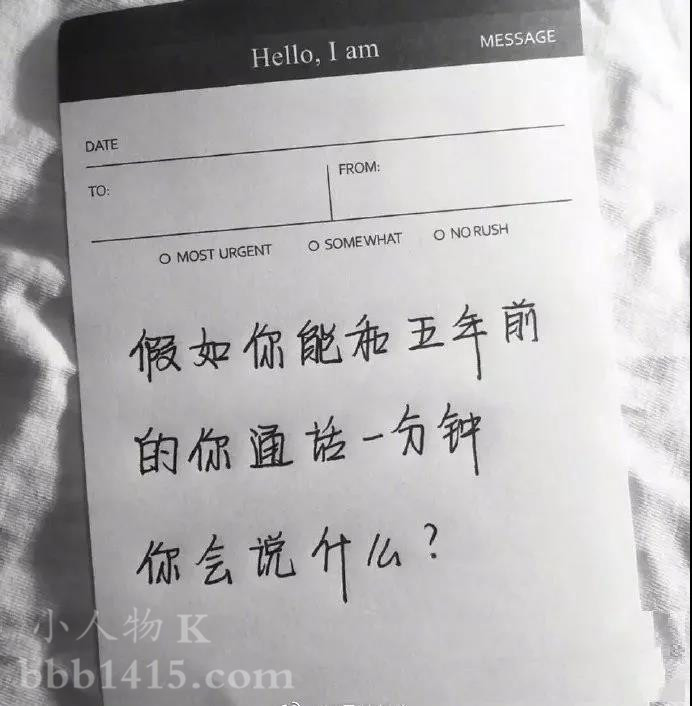 Hello, I am
MESSAGE
DATE
TO:
FROM:
O MOST URGENT O SOMEWHAT O NO RUSH
假如你能和五年前
的你通话一分钟
你会说什么？
小人物K
bbb1415.com